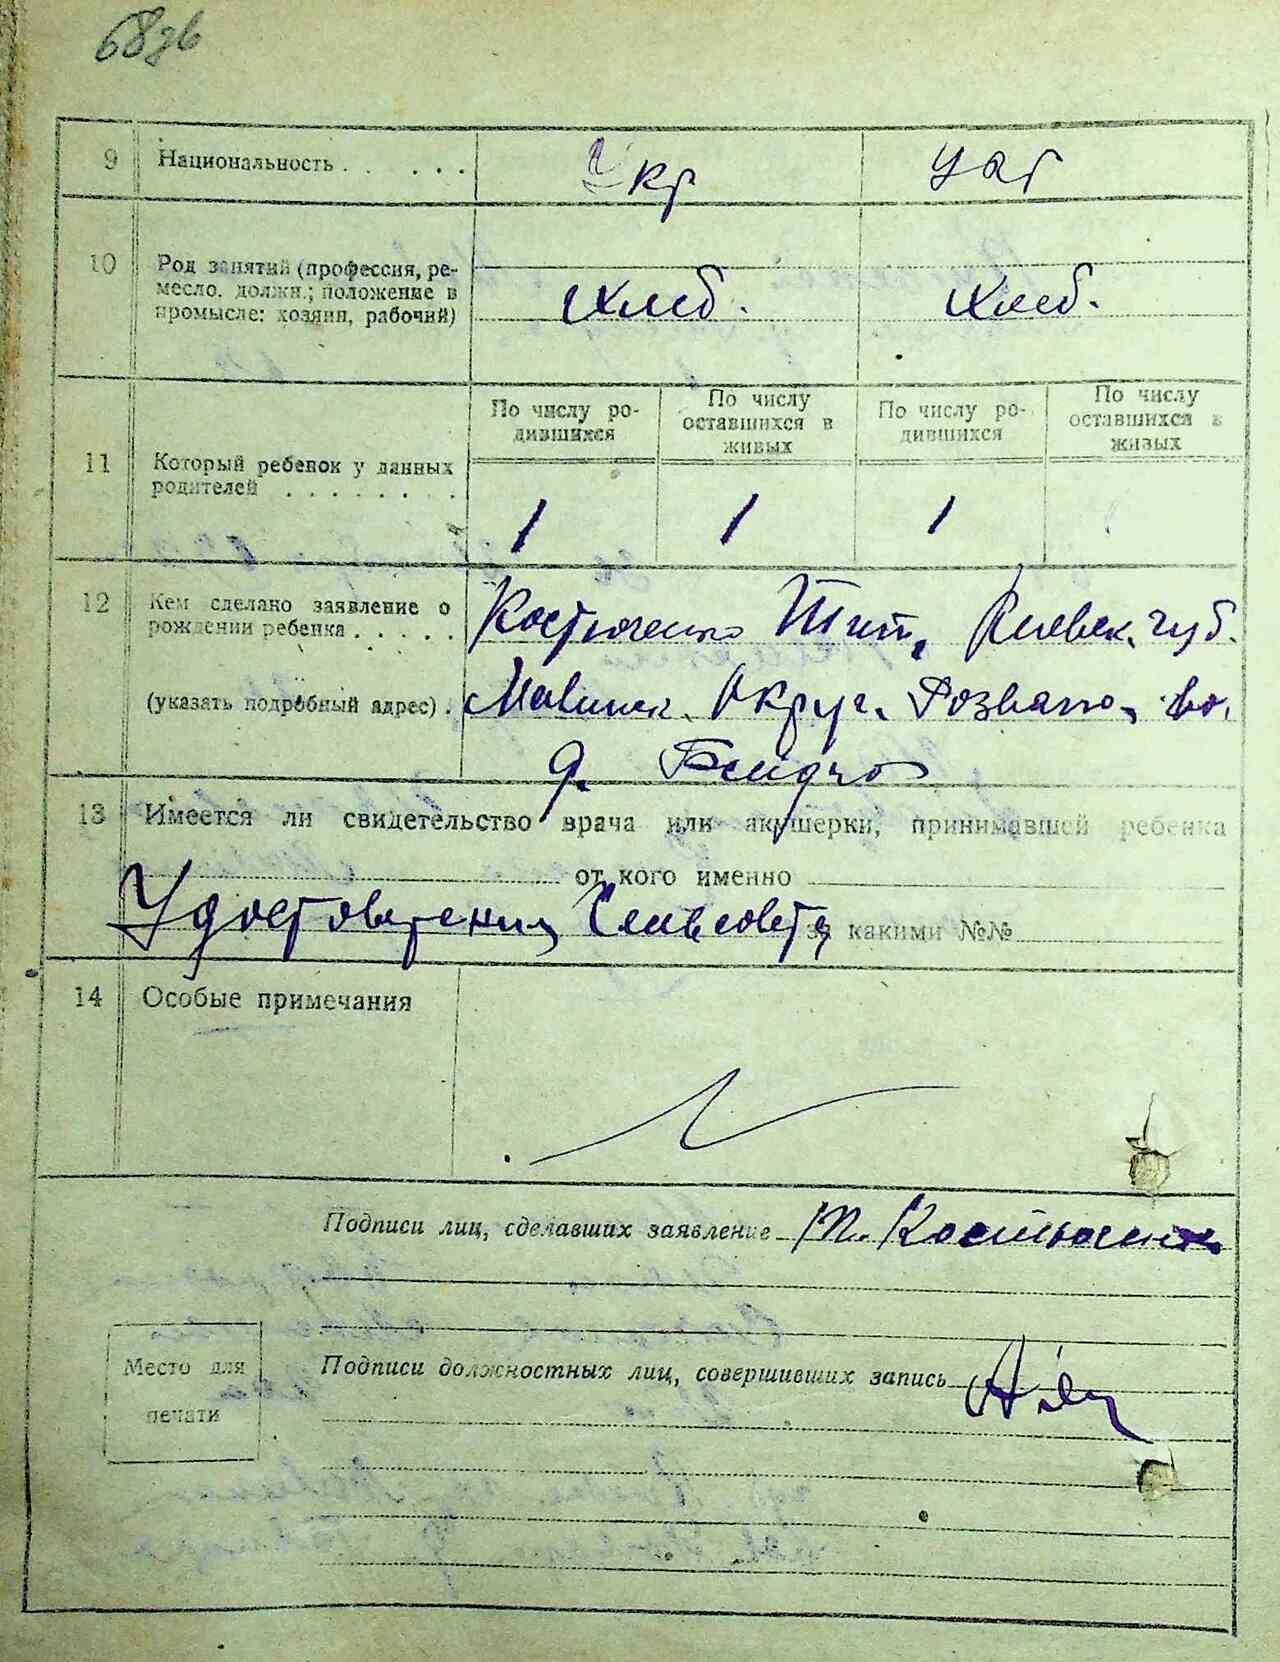 68зв
9 Национальность . . . . . . Укр
10 Род занятий (профессия, ре-
месло. должн.; положение в
промысле: хозяин, рабочий)
Хлеб. Хлеб.
По числу ро-
дившихся
По числу
оставшихся в
живых
По числу ро-
дившихся
По числу
оставшихся в
живых
11 Который ребенок у данных
родителей . . . . . . . .
1 1 1
12 Кем сделано заявление о
рождении ребенка . . . . .
Костюченко Тит, Киевск. губ.
(указать подробный адрес) . Малинск. Округ.
д.
13 Имеется ли свидетельство врача или акушерки, принимавшей ребенка
от кого именно
Удостоверения Сельсовета за какими №№
14 Особые примечания
Подписи лиц, сделавших заявление Т. Костюченко
Подписи должностных лиц, совершивших запись
Место для
печати